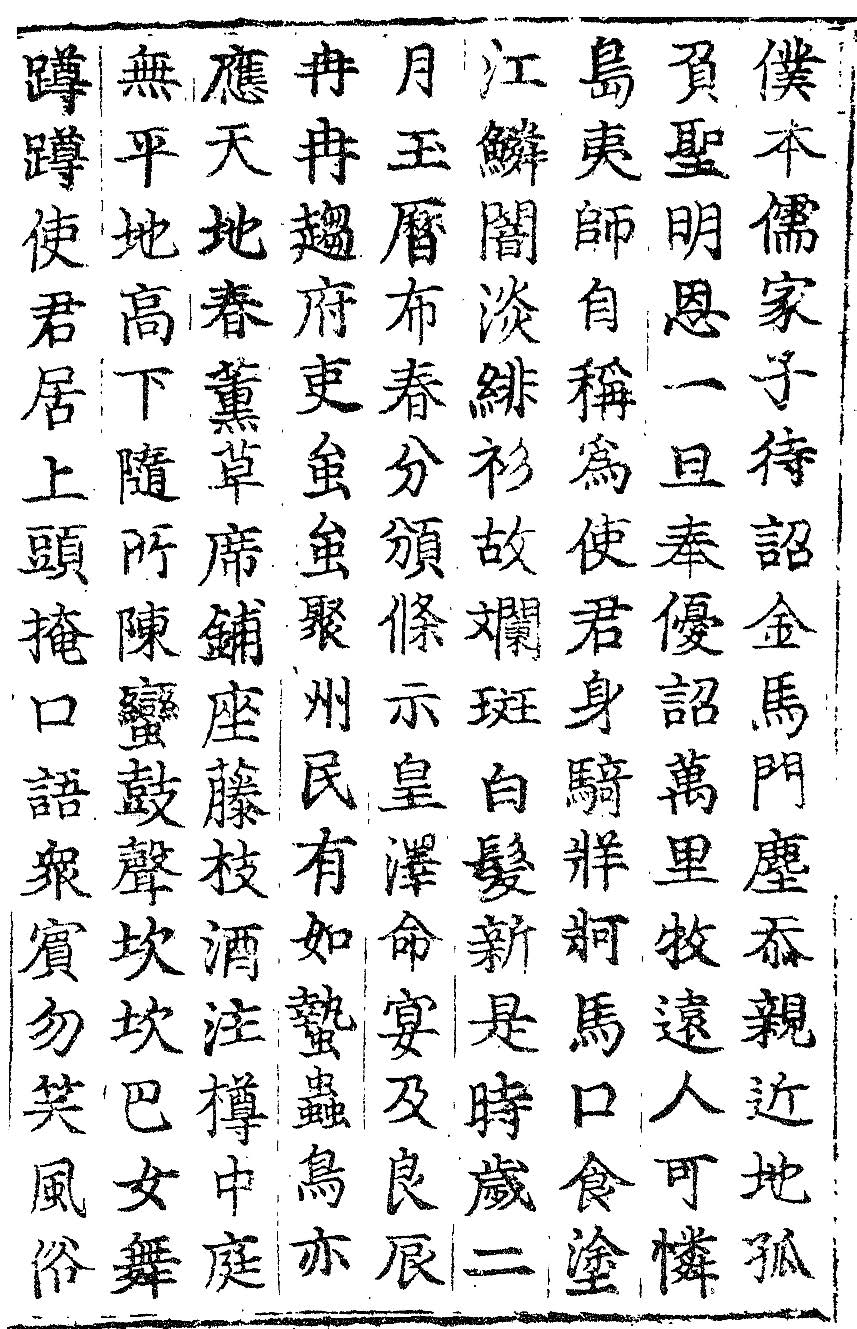 僕本儒家子待詔金馬門塵忝親近地孤
負聖明恩一旦奉優詔萬里牧遠人可憐
島夷師自稱爲使君身騎牂牁馬口食塗
江鱗闇淡緋衫故斕斑白髮新是時歲二
月玉曆布春分頒條示皇澤命宴及良辰
冉冉趨府吏蚩蚩聚州民有如蟄蟲鳥亦
應天地春薰草席鋪座藤枝酒注樽中庭
無平地高下隨所陳蠻鼓聲坎坎巴女舞
蹲蹲使君居上頭掩口語衆賓勿笑風俗